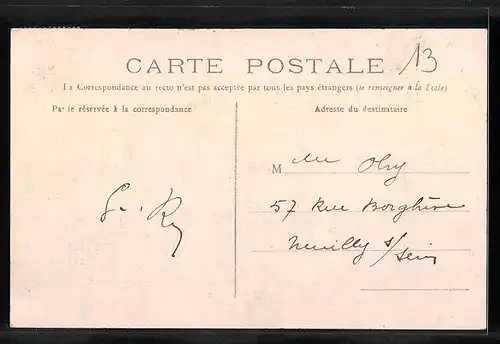 CARTE POSTALE
13
La Correspondance au recto n'est pas acceptée par tous les pays étrangers (se renseigner à la Poste)
Partie réservée à la correspondance
Adresse du destinataire
M
57 Rue Borghèse
Neuilly s/ Seine